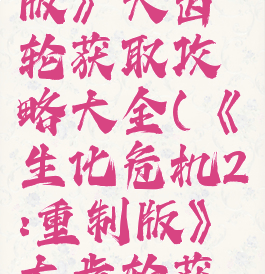 版》大齿
轮获取攻
略大全(《
生化危机2
:重制版》
大齿轮获